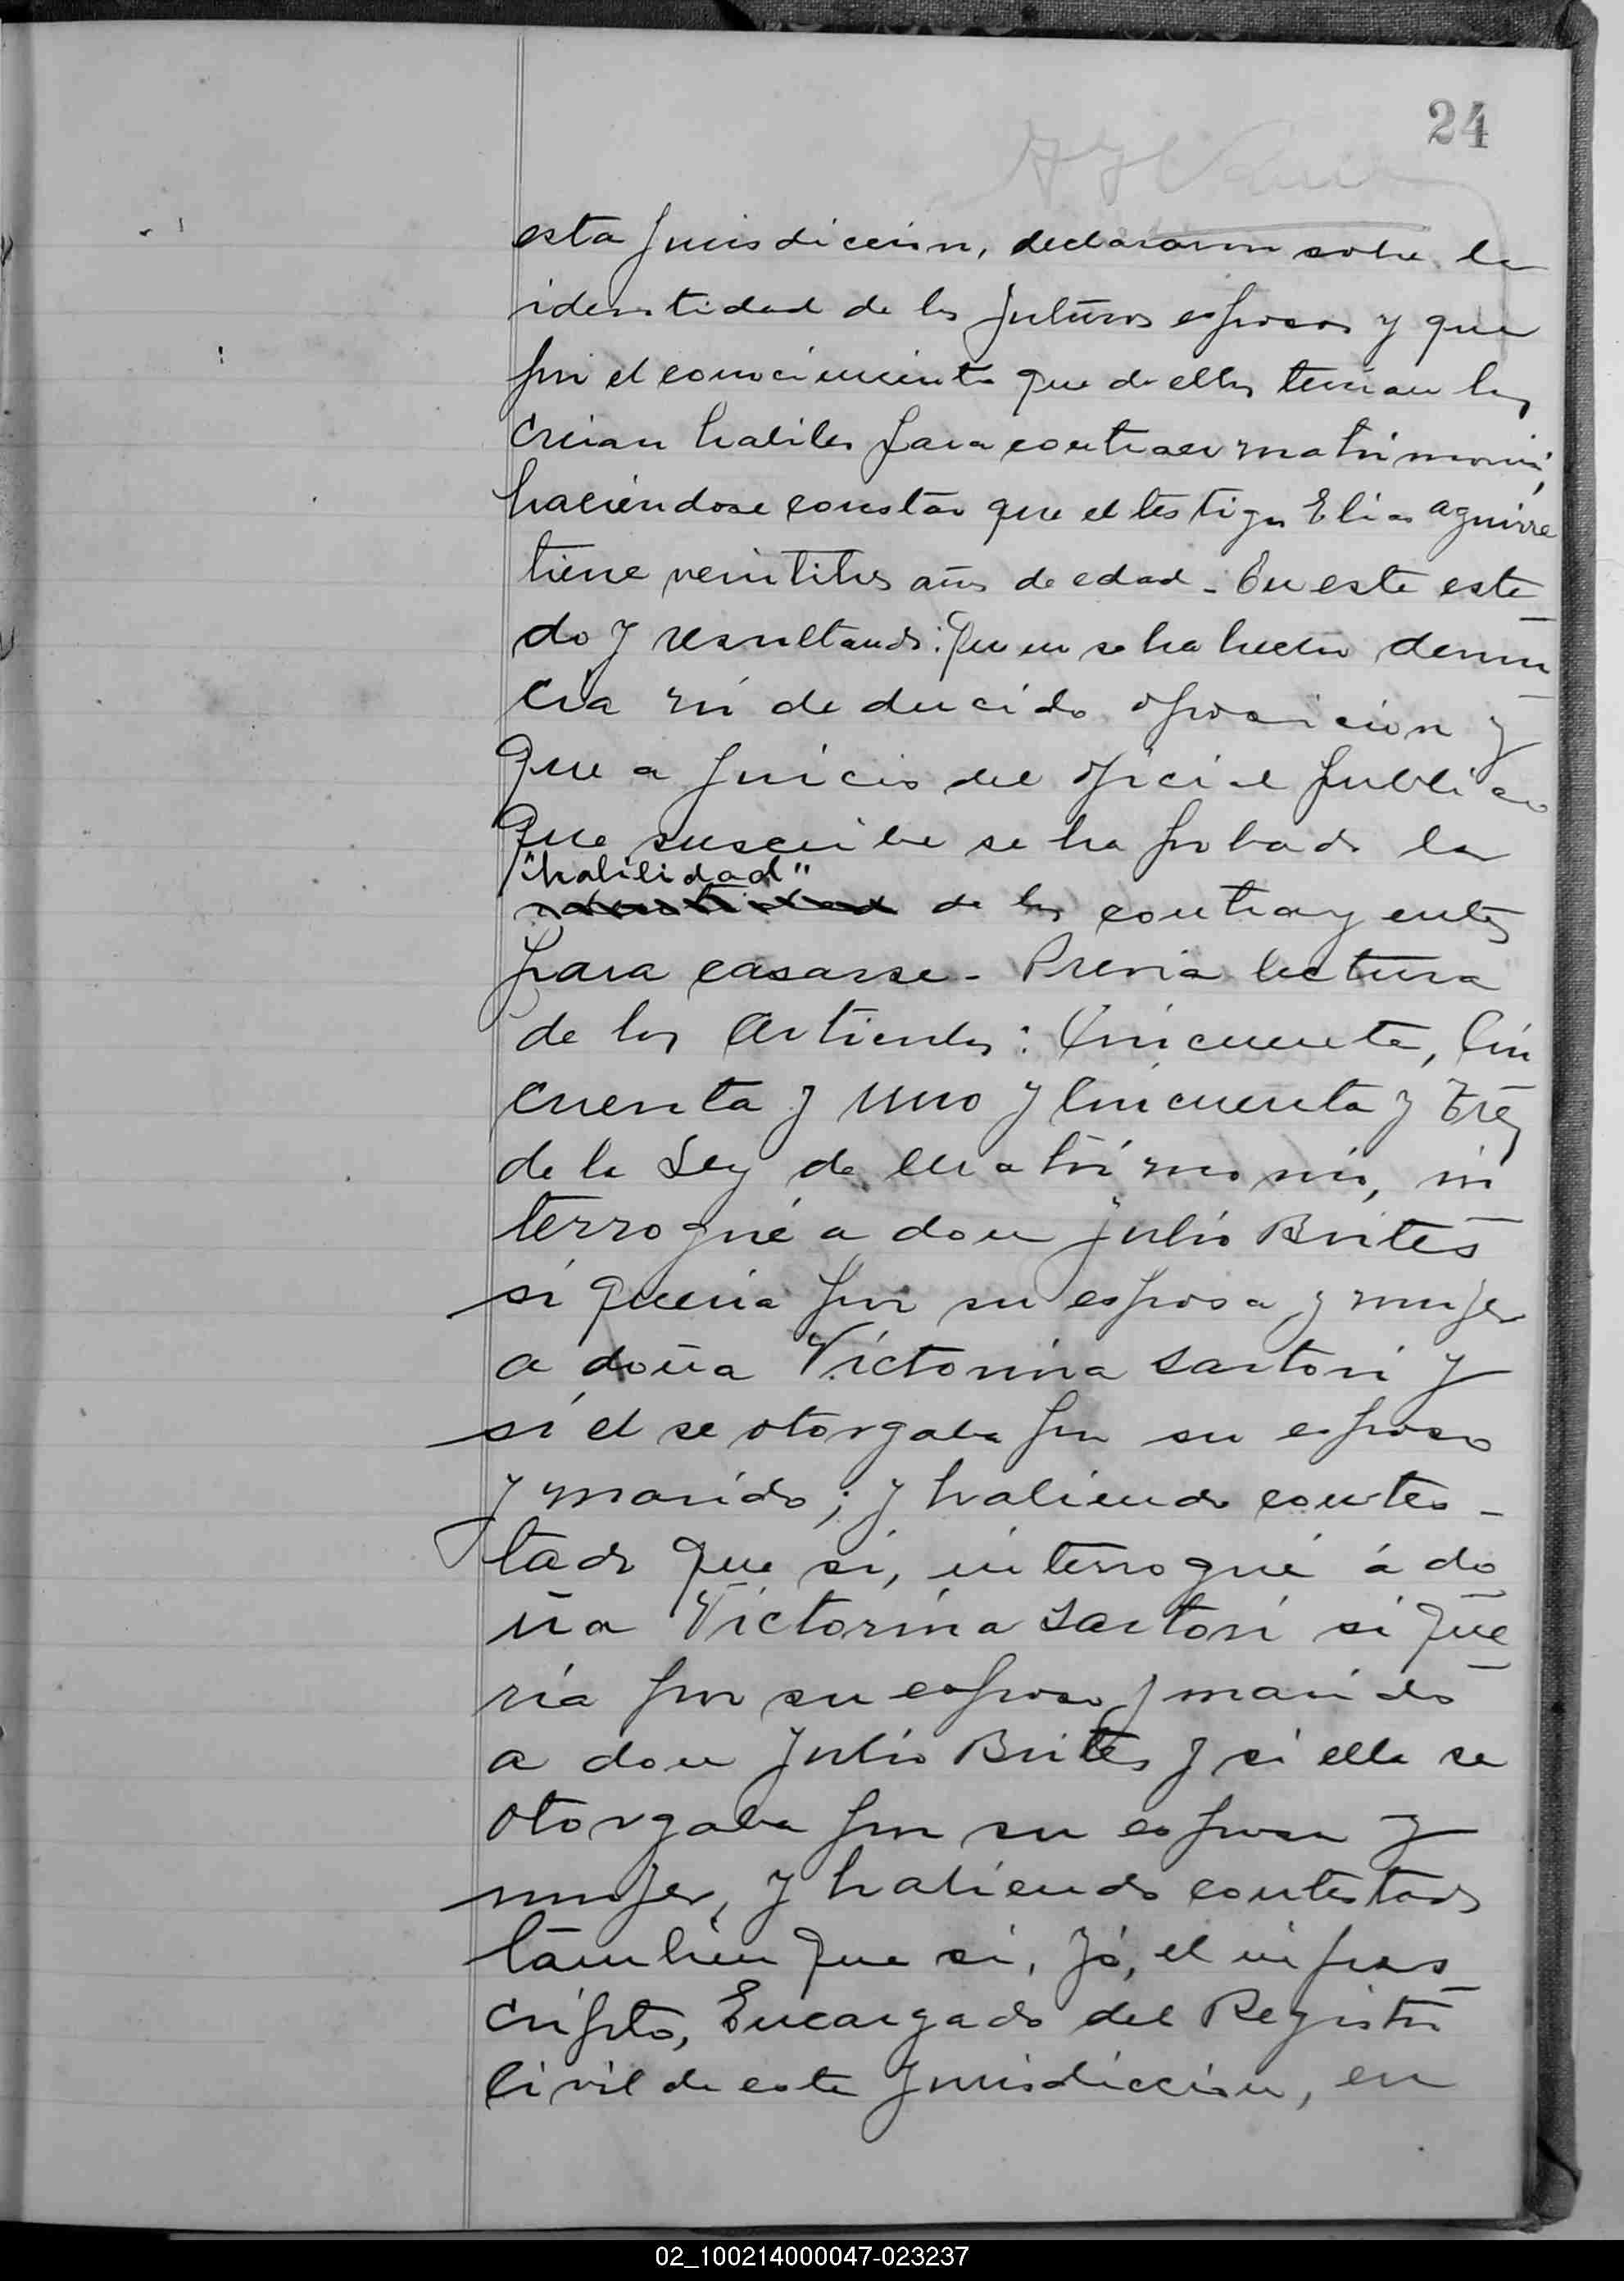 24
esta Jurisdiccion, declararon sobre la
identidad de los futuros esposos y que
por el conocimiento que de ellos tenian los
creian habiles para contraer matrimonio,
haciendose constar que el testigo Elias Aguirre
tiene veintitres años de edad - En este esta
do y resultando: Que no se ha hecho denun
cia ni deducido oposicion y
que a juicio del oficial publico
que suscribe se ha probado la
"habilidad"
identidad de los contrayentes
para casarse - Previa lectura
de los Articulos: Cincuenta, Cin
cuenta y uno y Cincuenta y tres
de la Ley de Matrimonio, in
terrogué a don Julio Brites
si queria por su esposa y mujer
a doña Victorina Sartori y
si el se otorgaba por su esposo
y marido; y habiendo contes-
tado que si, interrogué á do
ña Victorina Sartori si que
ria por su esposo y marido
a don Julio Brites y si ella se
otorgaba por su esposa y
mujer, y habiendo contestado
tambien que si, Yó, el infras
cripto, Encargado del Registro
Civil de esta Jurisdiccion, en
02_100214000047-023237